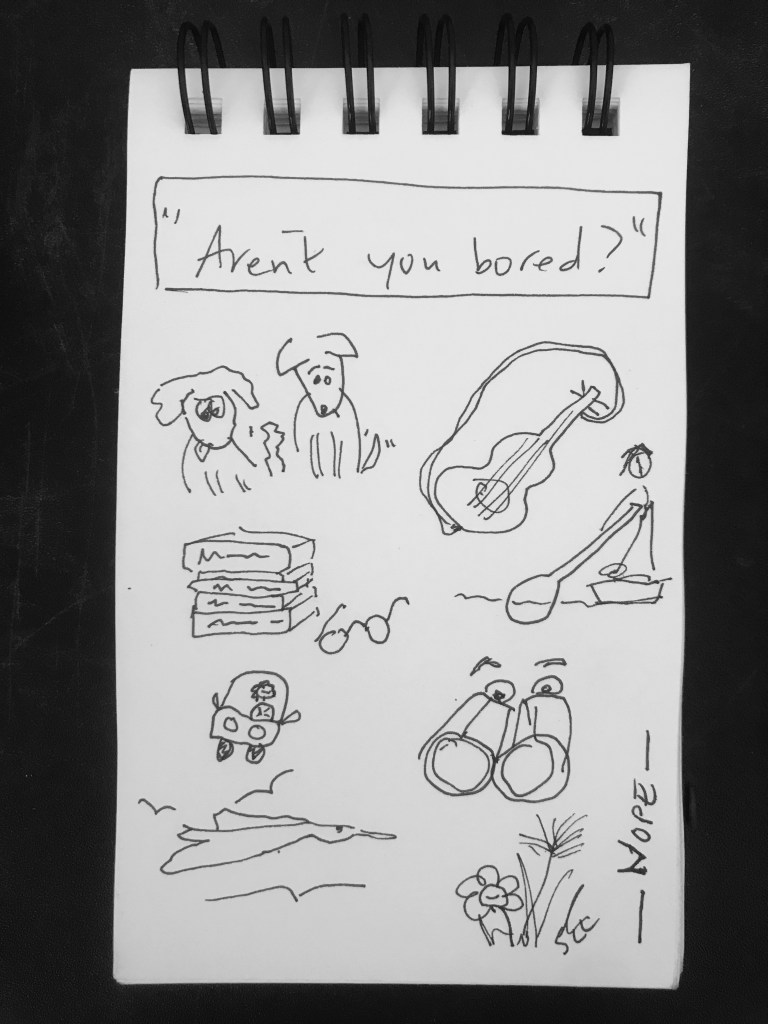 "Aren't you bored?"
— NOPE —